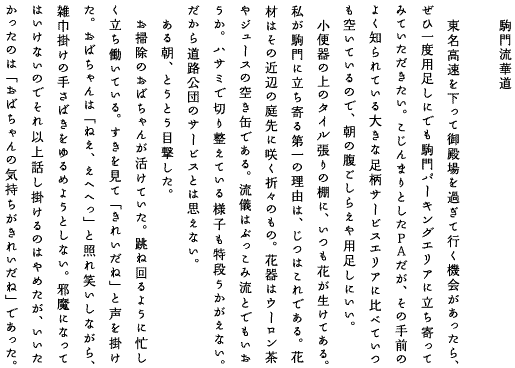 駒門流華道
東名高速を下って御殿場を過ぎて行く機会があったら、
ぜひ一度用足しにでも駒門パーキングエリアに立ち寄って
みていただきたい。こじんまりとしたＰＡだが、その手前の
よく知られている大きな足柄サービスエリアに比べていつ
も空いているので、朝の腹ごしらえや用足しにいい。
小便器の上のタイル張りの棚に、いつも花が生けてある。
私が駒門に立ち寄る第一の理由は、じつはこれである。花
材はその近辺の庭先に咲く折々のもの。花器はウーロン茶
やジュースの空き缶である。流儀はぶっこみ流とでもいお
うか。ハサミで切り整えている様子も特段うかがえない。
だから道路公団のサービスとは思えない。
ある朝、とうとう目撃した。
お掃除のおばちゃんが活けていた。跳ね回るように忙し
く立ち働いている。すきを見て「きれいだね」と声を掛け
た。おばちゃんは「ねえ、えへへっ」と照れ笑いしながら、
雑巾掛けの手さばきをゆるめようとしない。邪魔になって
はいけないのでそれ以上話し掛けるのはやめたが、いいた
かったのは「おばちゃんの気持ちがきれいだね」であった。